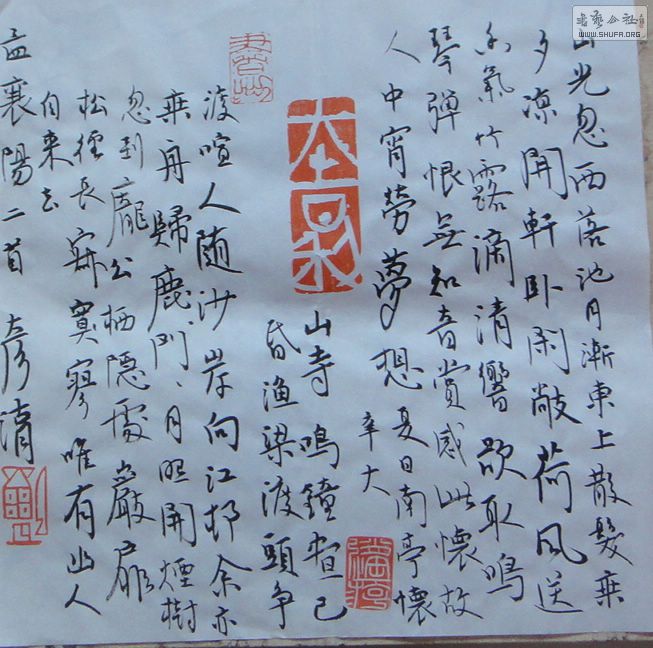 山光忽西落池月漸東上散髮乘
夕涼開軒卧閑敞荷風送
香氣竹露滴清響欲取鳴
琴彈恨無知音賞感此懷故
人中宵勞夢想 夏日南亭懷
辛大
山寺鳴鐘晝已
昏漁梁渡頭爭
渡喧人随沙岸向江邨余亦
乘舟歸鹿門、月照開煙樹
忽到龐公栖隱處巖扉
松徑長寂寞寥唯有幽人
自来去
孟襄陽二首 彦清
書藝公社
WWW.SHUFA.ORG